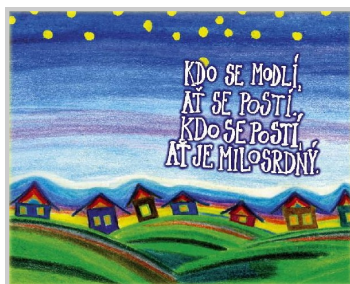 KDO SE MODLÍ,
AŤ SE POSTÍ,
KDO SE POSTÍ,
AŤ JE MILOSRDNÝ.